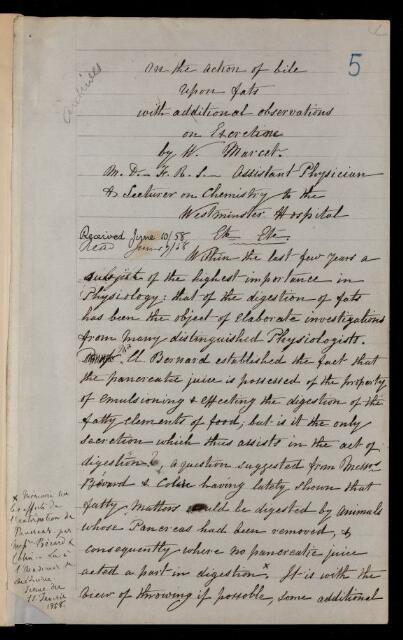 5
Archives
On the action of bile
upon fats
with additional observations
on Excretine
by W. Marcet.
M. D. F. R. S. Assistant Physician
& Lecturer on Chemistry to the
Westminster Hospital
Etc Etc.
Received June 10/58
Read June 17/58
Within the last few years a
subject of the highest importance in
Physiology: that of the digestion of fats
has been the object of elaborate investigations
from many distinguished Physiologists.
Mr. Cl Bernard established the fact that
the pancreatic juice is possessed of the property
of emulsioning & effecting the digestion of the
fatty elements of food; but is it the only
secretion which thus assists in the act of
digestion? a question suggested from Messrs
Bérard & Colin having lately shown that
fatty matters could be digested by animals
whose Pancreas had been removed, &
consequently where no pancreatic juice
acted a part in digestion x. It is with the
view of throwing if possible, some additional
x Mémoire sur
les effets de
l'extirpation du
Pancreas, par
MM. Bérard &
Colin. Lu à
l'Academie de
Médecine
Séance du
1858.